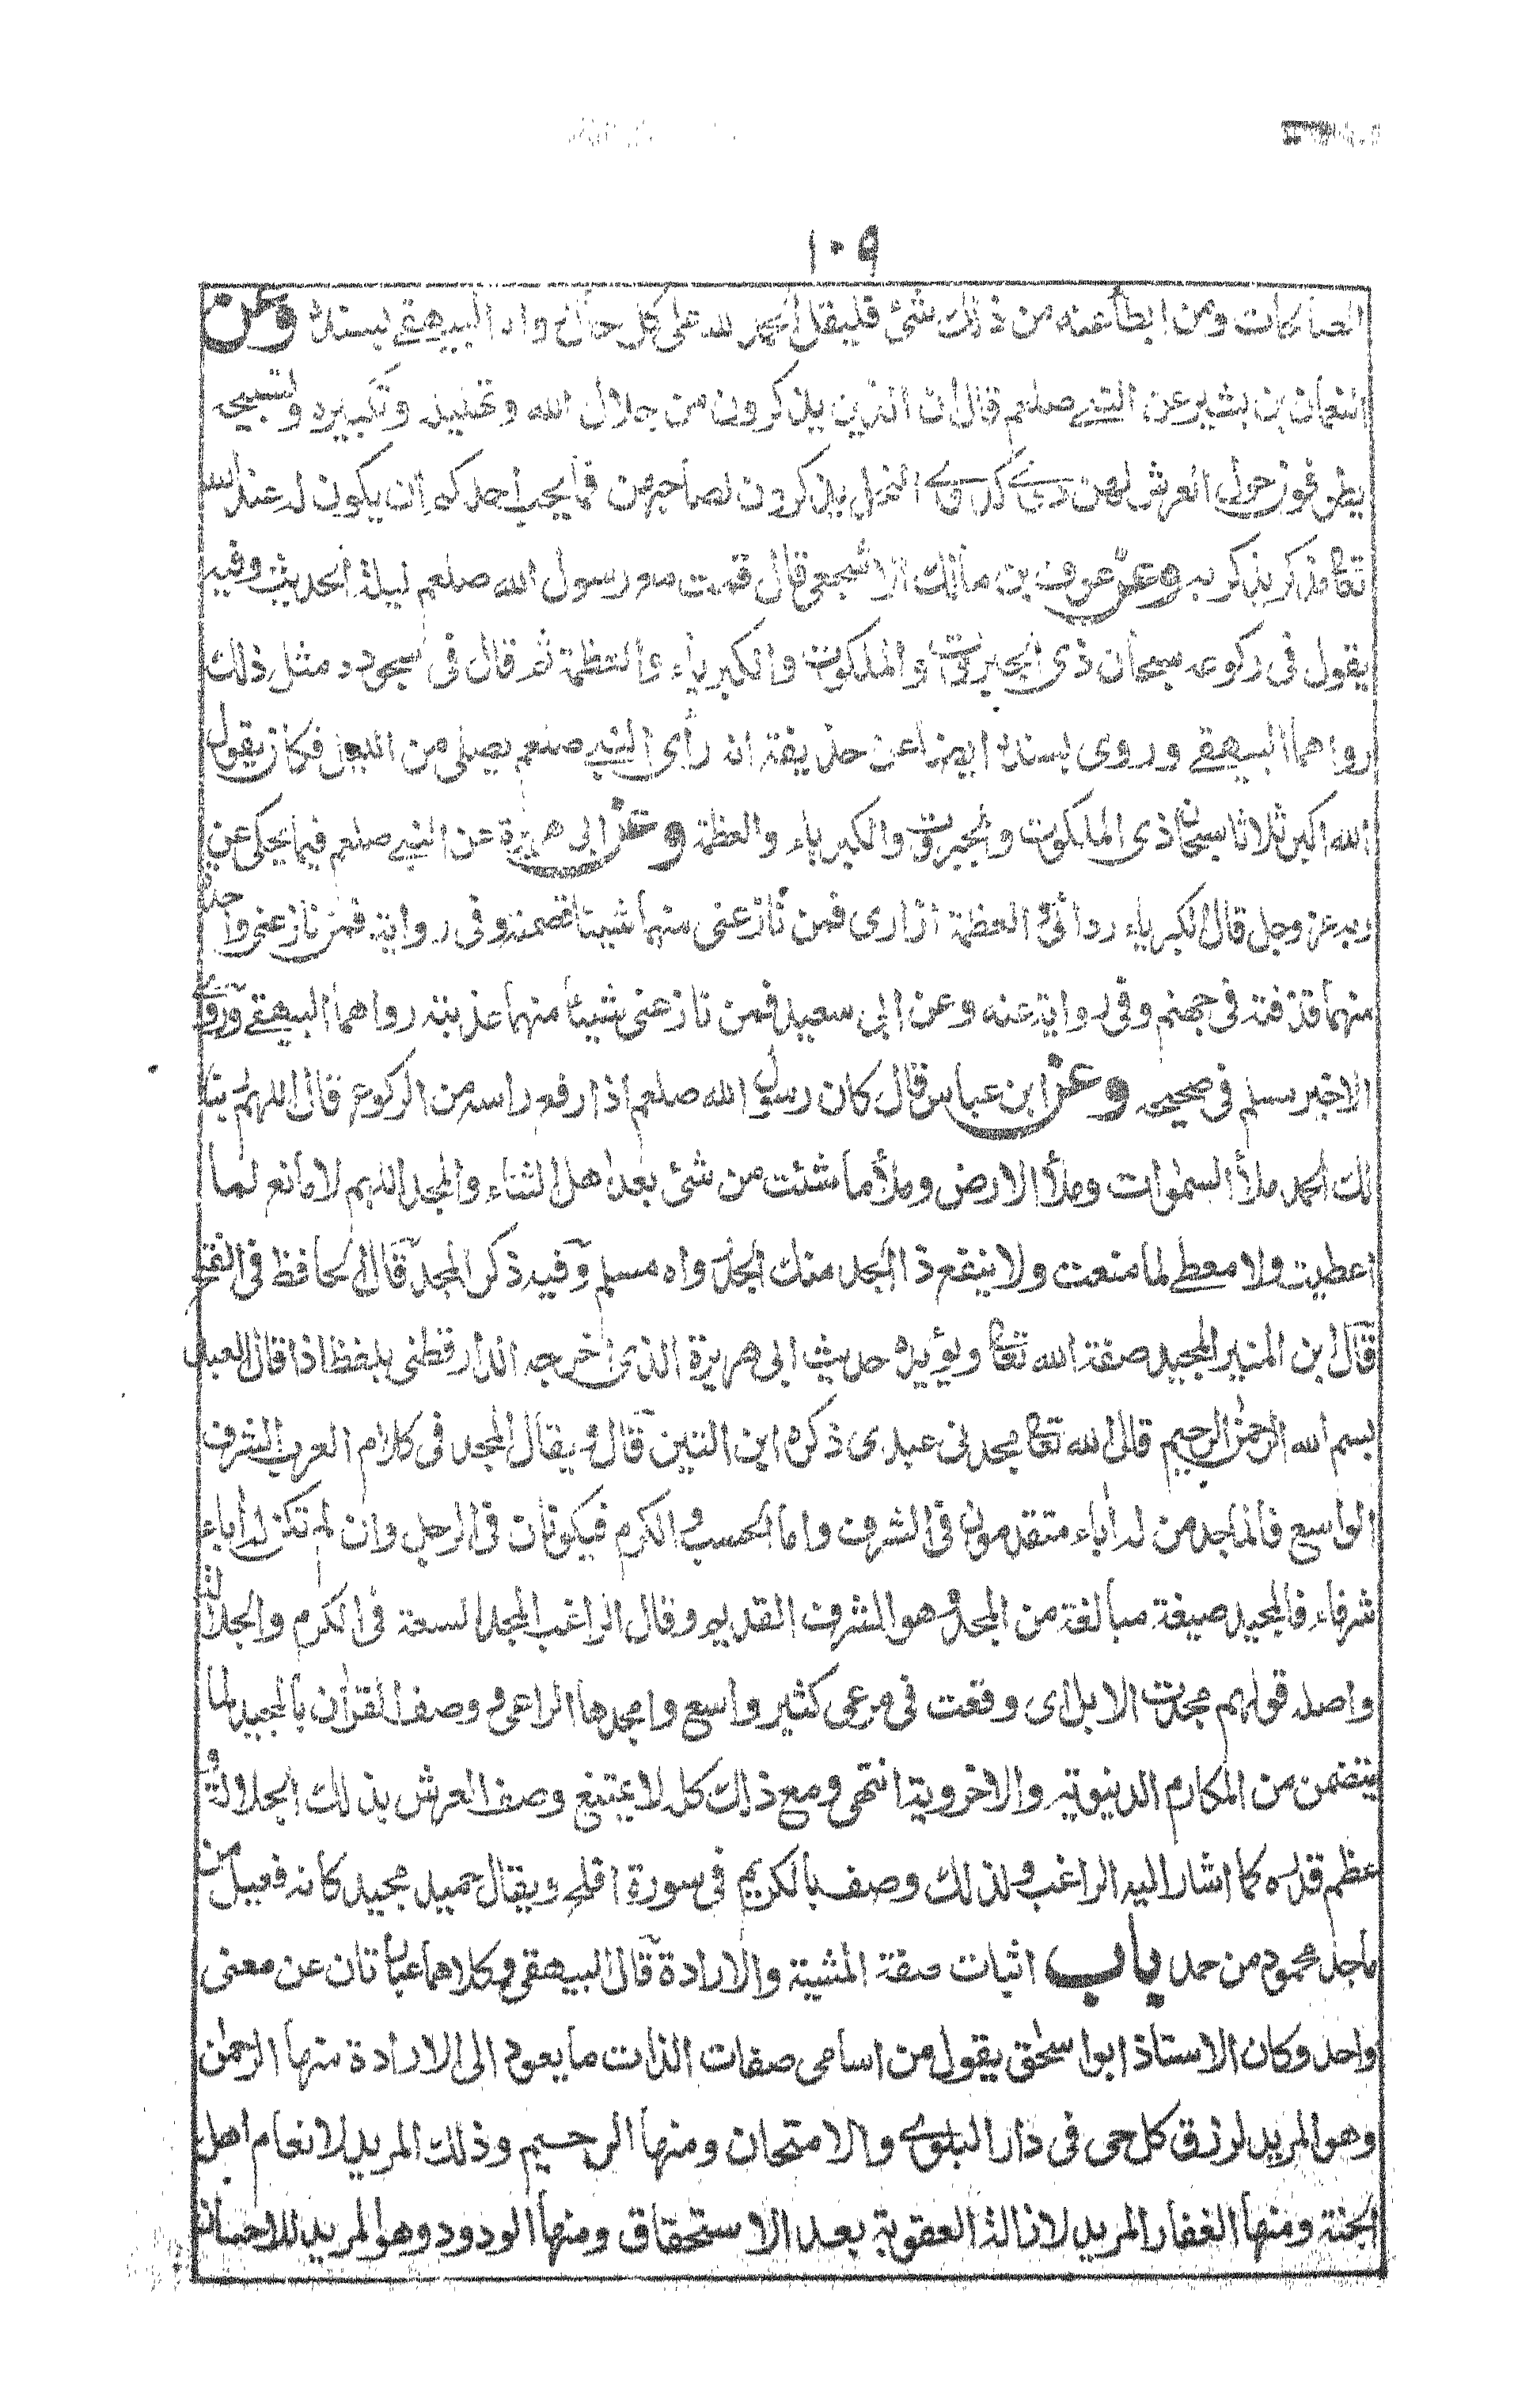 ١٠٩
الصالحات ومن ابطأ عنه من ذلك شئ فليقل الحمد لله على كل حال رواه البيهقے بسنده وعن
النعمان بن بشير عن النبے صلعم قال ان الذين يذكرون من جلال الله وتحميده وتكبيره وتسبيحه
يطوفون حول العرش لهن دوي كدوے النحل يذكرون لصاحبهن فما يحب احدكم ان يكون له عند الله
تعا مذكر يذكر به وعن عوف بن مالك الاشجعى قال قمت مع رسول الله صلعم ليلة الحديث وفيه
يقول فى ركوعه سبحان ذى الجبروت والملكوت والكبرياء والعظمة ثم قال فى سجوده مثل ذلك
رواهما البيهقے وروى بسنده ايضا عن حذيفة انه رأى النبے صلعم يصلى من الليل فكان يقول
الله اكبر ثلاثا سبحان ذى الملكوت والجبروت والكبرياء والعظمة وعن ابى هريرة عن النبے صلعم فيما يحكى عن
ربه عز وجل قال الكبرياء ردائى والعظمة ازارى فمن نازعنى منهما شيئا قصمته وفى رواية فمن نازعنى واحدا
منهما قذفته فى جهنم وفى رواية عنه وعن ابى سعيد فمن نازعنى شيئا منهما عذبته رواهما البيهقے وروے
الاخير مسلم فى صحيحه وعن ابن عباس قال كان رسول الله صلعم اذا رفع راسه من الركوع قال اللهم ربنا
لك الحمد ملأ السموات وملأ الارض وملأ ما شئت من شئ بعد اهل الثناء والمجد اللهم لا مانع لما
اعطيت ولا معطے لما منعت ولا ينفع ذا الجد منك الجد رواه مسلم وفيه ذكر المجد قال الحافظ فى الفتح
قال ابن المنير المجيد صفة الله تعا ويؤيده حديث ابى هريرة الذى اخرجه الدارقطنى بلفظ اذا قال العبد
بسم الله الرحمن الرحيم قال الله تعا مجدنى عبدى ذكره ابن التين قال ويقال المجد فى كلام العرب الشرف
الواسع فالماجد من له أباء متقدمون فى الشرف واما الحسب والكرم فيكونان فى الرجل وان لم تكن له أباء
شرفاء فالمجيد صيغة مبالغة من المجد وهو الشرف القديم وقال الراغب المجد السعة فى الكرم والجلالة
واصله قولهم مجدت الابل اى وقعت فى مرعى كثير واسع وامجدها الراعى ووصف القرآن بالمجيد لما
يتضمن من المكارم الدنيوية والاخروية انتهى ومع ذلك كله لا يمتنع وصف العرش بذلك لجلالته و
عظم قدره كما اشار اليه الراغب ولذلك وصف بالكريم فى سورة افلح ويقال حميد مجيد كانه فعيل من
ماجد محمود من حمد باب اثبات صفة المشية والارادة قال البيهقى وكلاهما عبارتان عن معنى
واحد وكان الاستاذ ابو اسحق يقول من اسامى صفات الذات ما يعود الى الارادة منها الرحمن
وهو المريد لرزق كل حى فى دار البلوے والامتحان ومنها الرحيم وذلك المريد لانعام اهل
الجنة ومنها الغفار المريد لازالة العقوبة بعد الاستحقاق ومنها الودود وهو المريد للاحسان